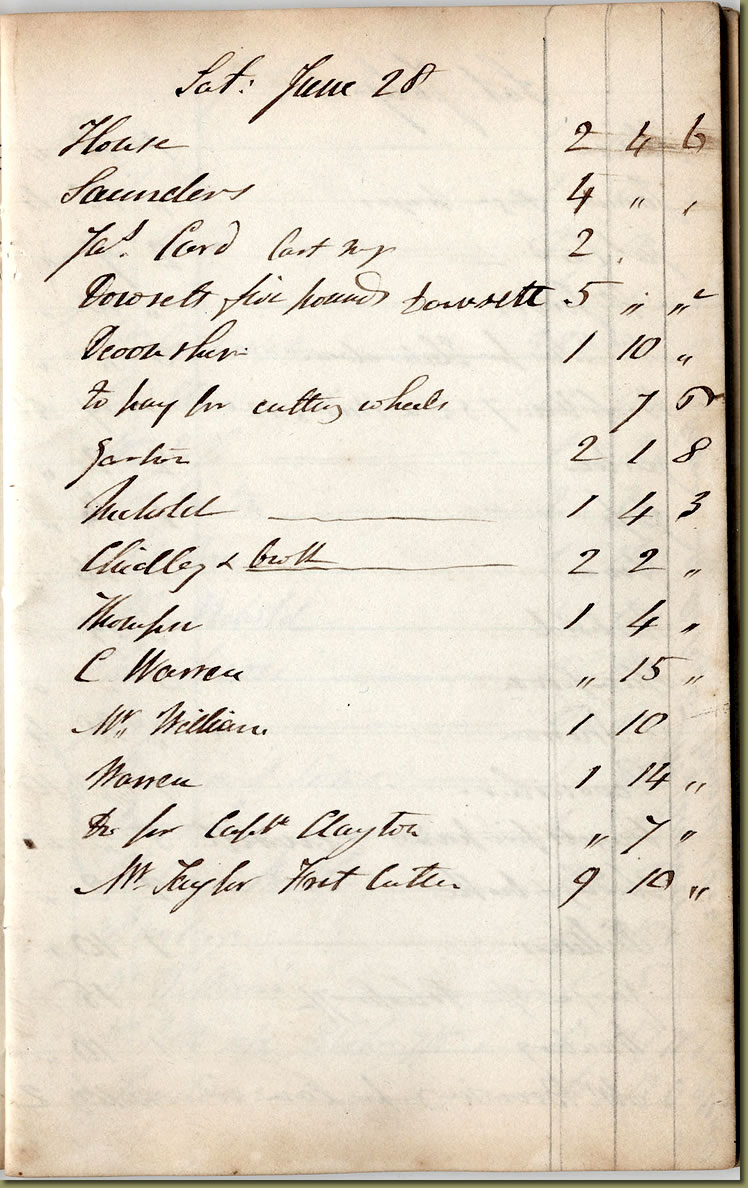 Sat: June 28
House 2 4 6
Saunders 4 " "
Jas. Card 2
Dowsett five pounds Dowsett 5 " "
1 10 "
to pay for cutting wheels 7 6
2 1 8
Nichold 1 4 3
Chidley & 2 2 "
Thompson 1 4 "
C Warren " 15 "
Mr. William 1 10
Warren 1 14 "
Do for Captn Clayton " 7 "
Mr. Taylor Fret Cutter 9 10 "